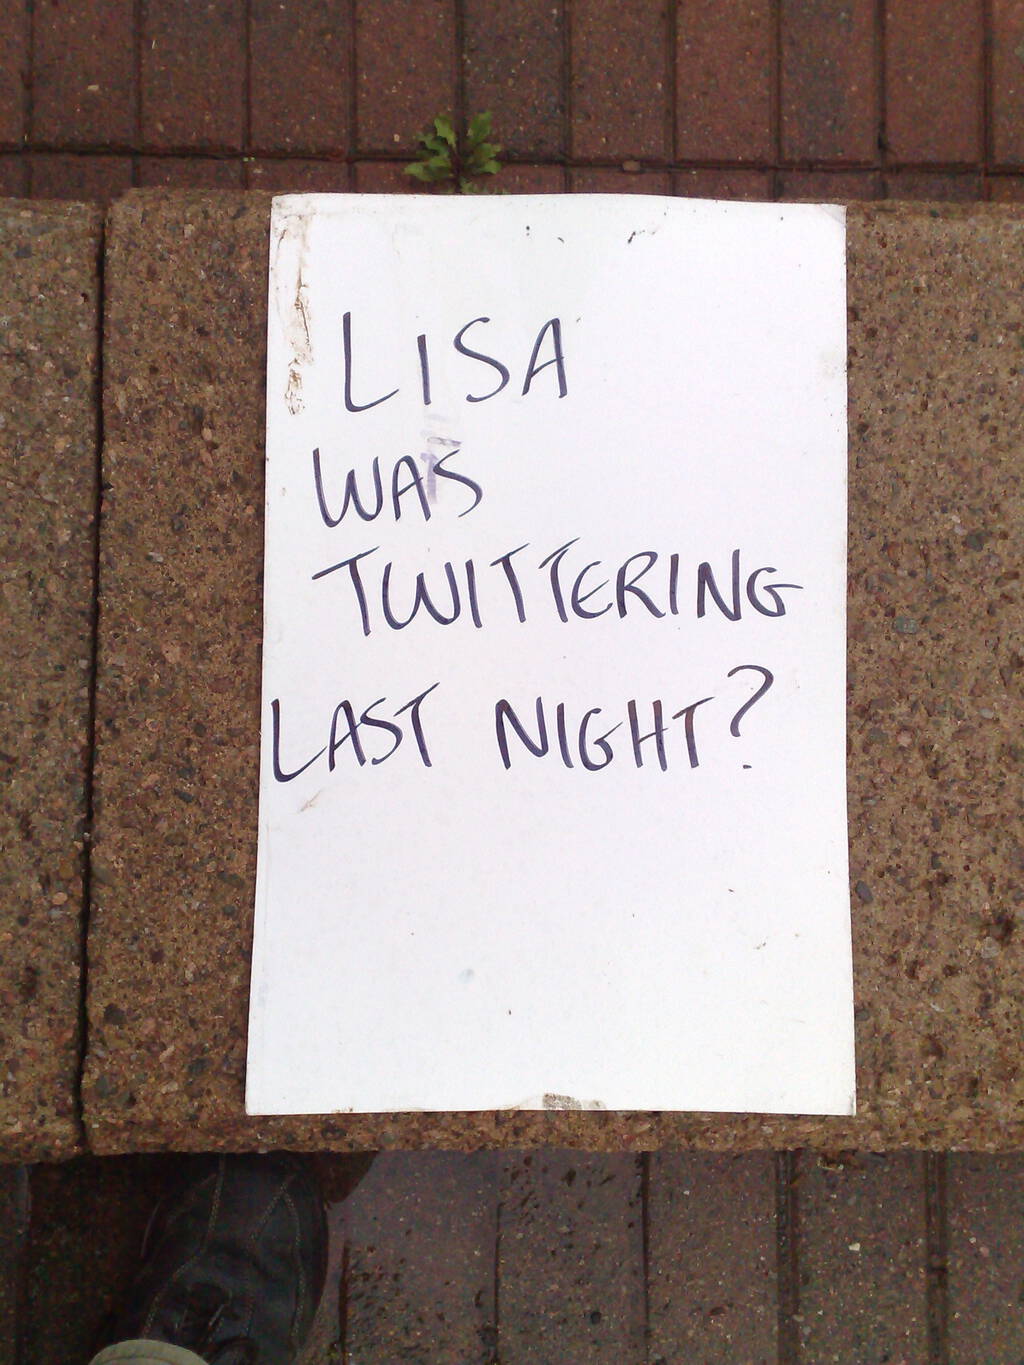 LISA
WAS
TWITTERING
LAST NIGHT?